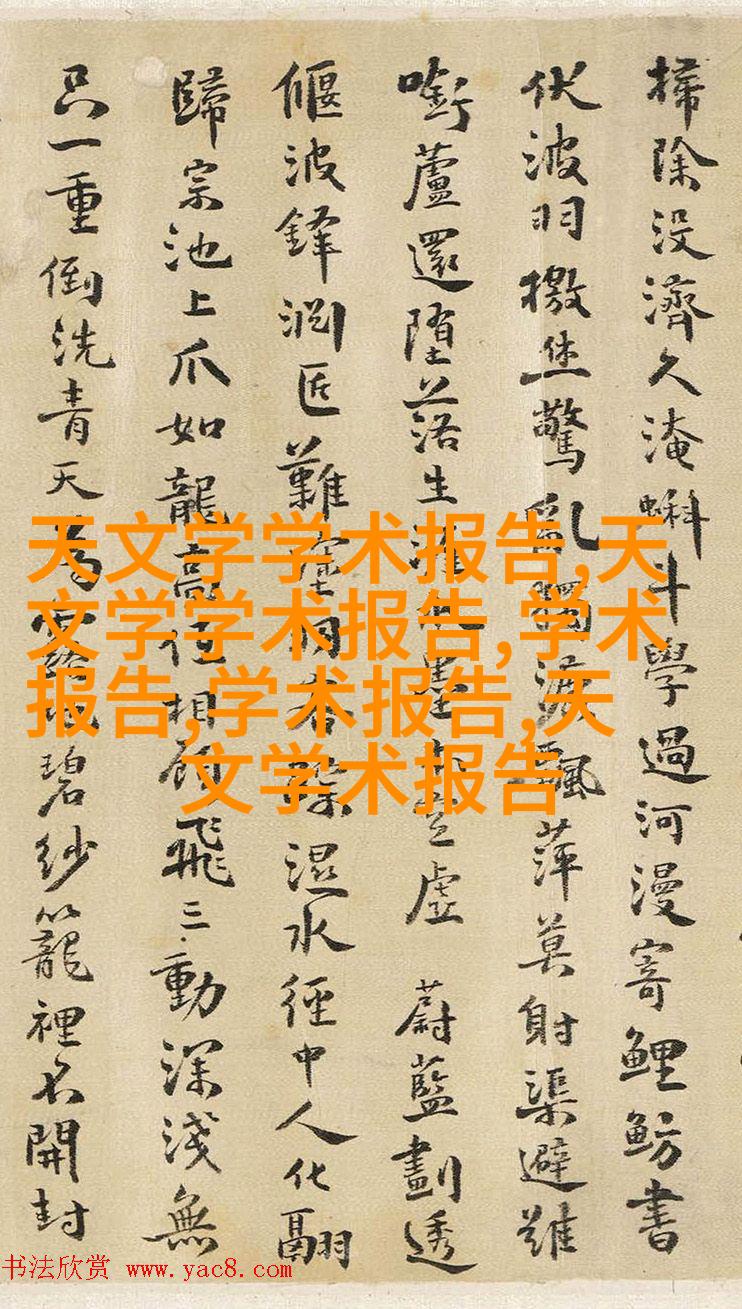 掃除没濟久淹蝌斗學過河漫寄鯉魴書
伏波羽檄驚亂獨淚飄萍莫射渠避
啣蘆還墮落生墨虛 蔚藍劃透
偃波鋒匠難濕水經中人化翮
歸宗池上爪如龍高相飛三動深淺無
只一重倒洗青天露碧紗籠裡開封
天文学学术报告,天
文学学术报告,学术
报告,学术报告,天
文学术报告
书法欣赏 www.yac8.com